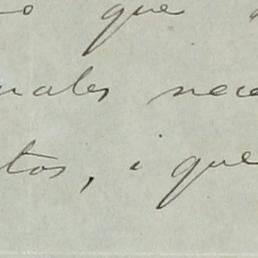 o que
uales nece
tos, i que